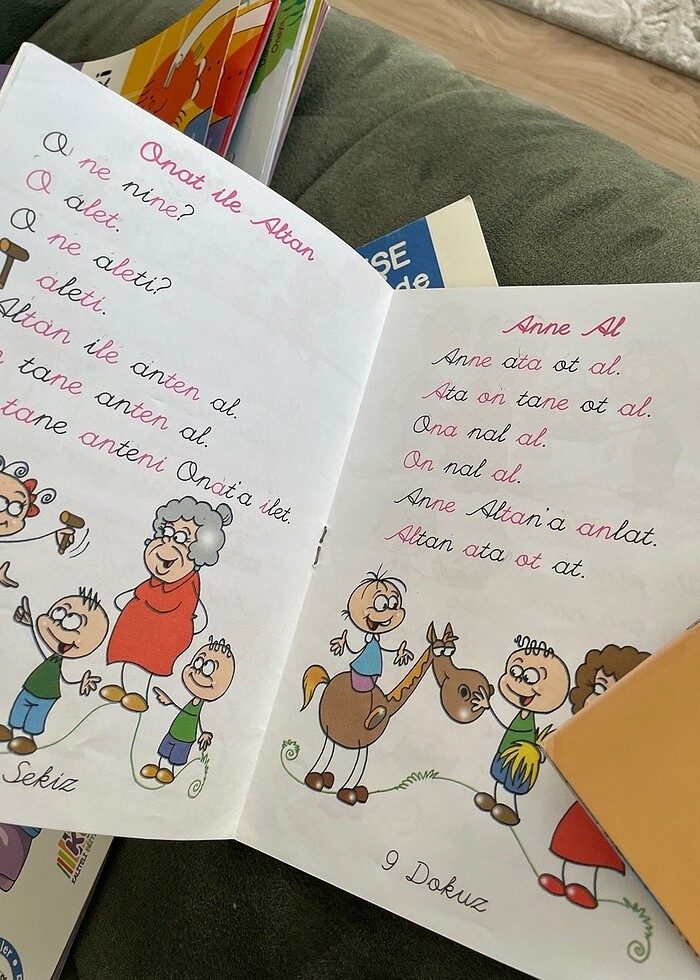 Onat ile Altan
O ne nine?
O alet.
O ne aleti?
aleti.
Altan ile anten al.
tane anten al.
tane anteni Onat'a ilet.
Sekiz
Anne Al
Anne ata ot al.
Ata on tane ot al.
Ona nal al.
On nal al.
Anne Altan'a anlat.
Altan ata ot at.
9 Dokuz